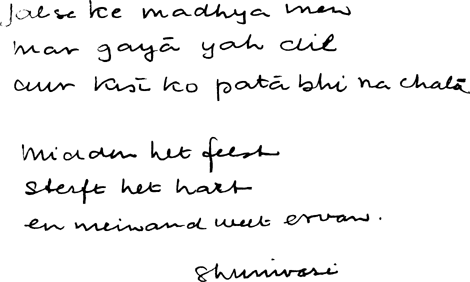 jalse ke madhya men
mar gayā yah dil
aur kisī ko patā bhi na chalā
Midden het feest
sterft het hart
en niemand weet ervan.
Shrinivāsi